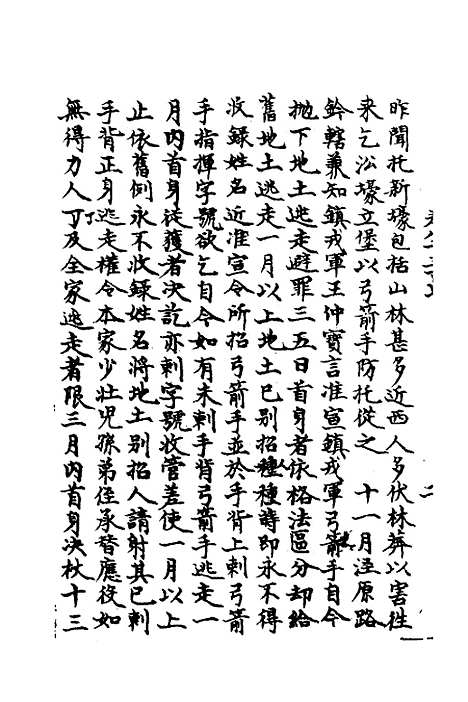 昨聞托新壕包括山林甚多近西人多伏林莽以害徃
来乞㳂壕立堡以弓箭手防托從之　十一月涇原路
鈐轄兼知鎮戎軍王仲寶言准宣鎮戎軍弓箭手自今
抛下地土逃走避罪三五日首身者依格法區分却給
舊地土逃走一月以上地土已別招種種蒔即永不得
收録姓名近准宣令所招弓箭手並於手背上刺弓箭
手指揮字號欲乞自今如有未刺手背弓箭手逃走一
月内首身徒獲者决訖亦刺字號收管差使一月以上
止依舊例永不收録姓名將地土別招人請射其已刺
手背正身逃走權令本家少壯兒孫弟侄承替應役如
無得力人丁及全家逃走者限三月内首身决杖十三